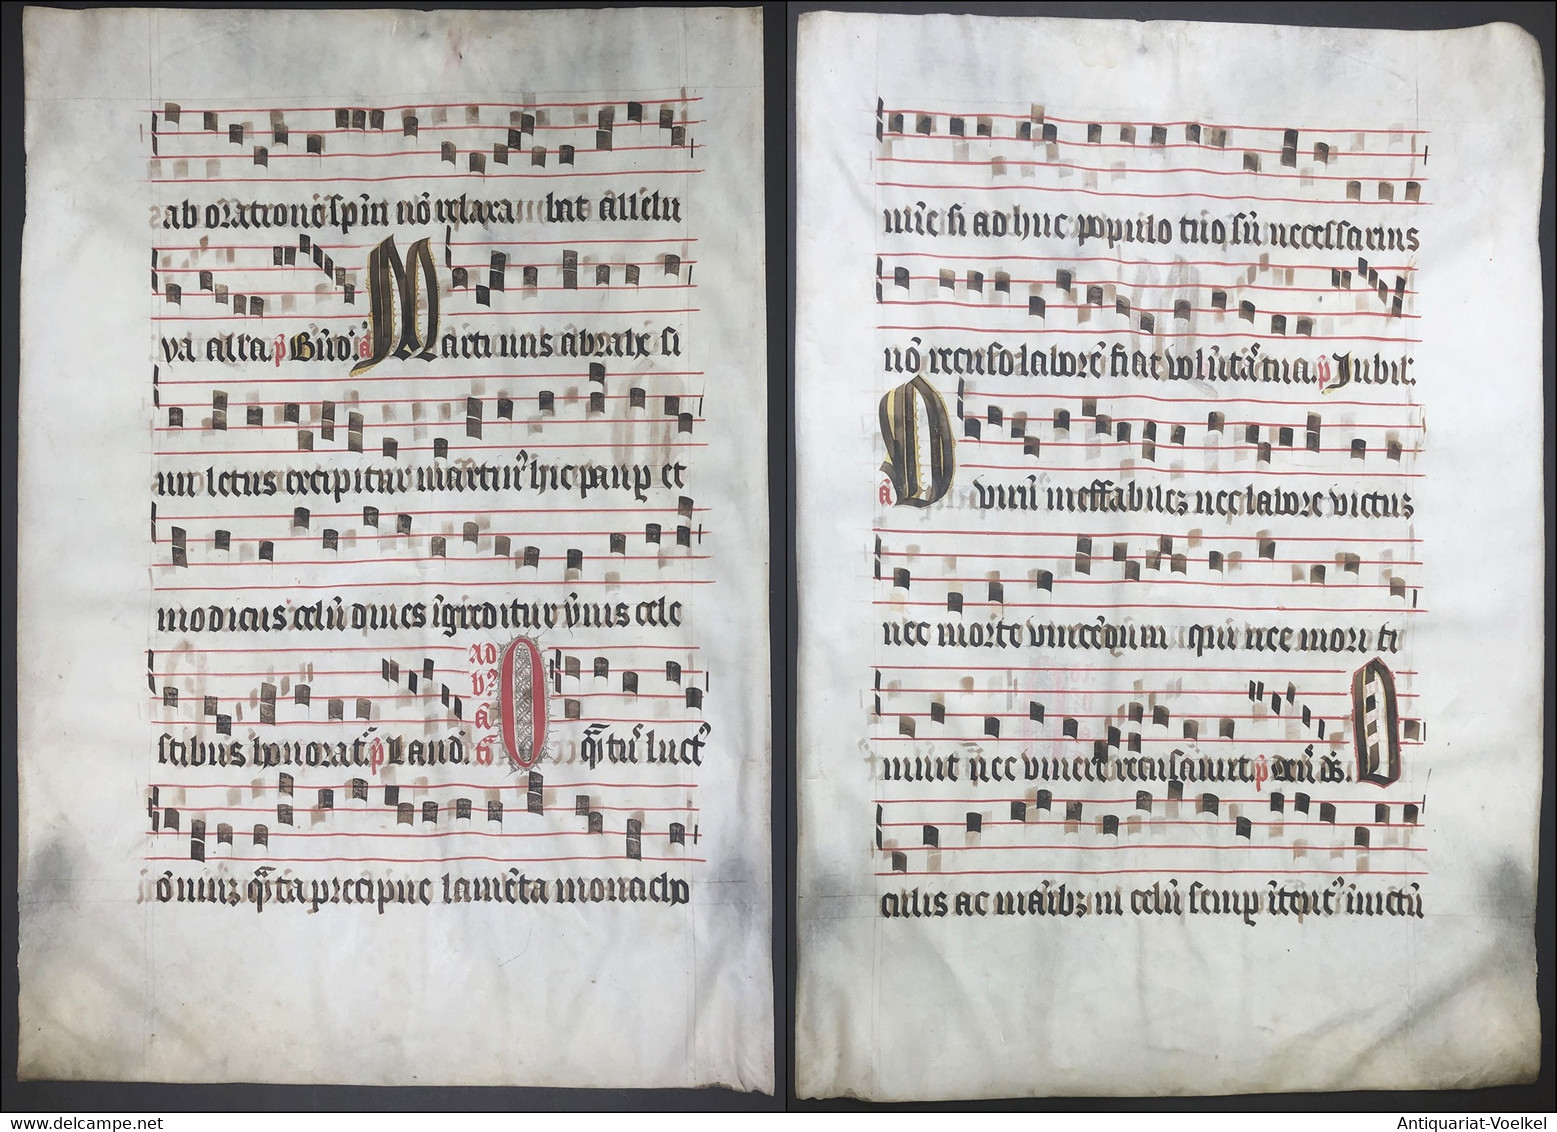 ab oratione spm nō relaxa bat allelu
ya alla. p̄ Bn̄d. a Martinus abrahe si
nu letus excipitur martin' hic paup et
modicus celū dives īgreditur ȳnis cele
stibus honorat. p̄ Laud. ad b? a O q̄tu' luct'
ōniuz q̄ta precipue lamēta monacho
mīe si adhuc populo tuo sū necessarius
nō recuso laborē fiat volūtas tua. p̄ Jubil.
a O virū ineffabilez nec labore victus
nec morte vincēdum qui nec mori ti
muit nec vivere recusavit. p̄ Deus ds. O
culis ac manibz in celū semp ītent' invictū
Antiquariat-Voelkel